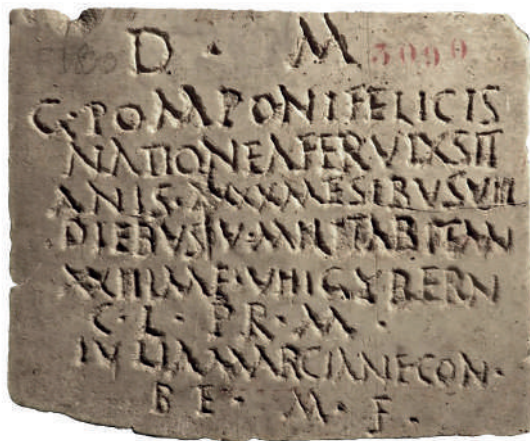 D · M
C·POMPONI FELICIS
NATIONE AFER VIXSIT
ANIS· MESIBVS VIII
DIEBVS IV·MILITABIT AN
XXIII ME·VIII GYBERN
C·L·PR·M·
IVLIA MARCIANE CON·
BE·M·F·